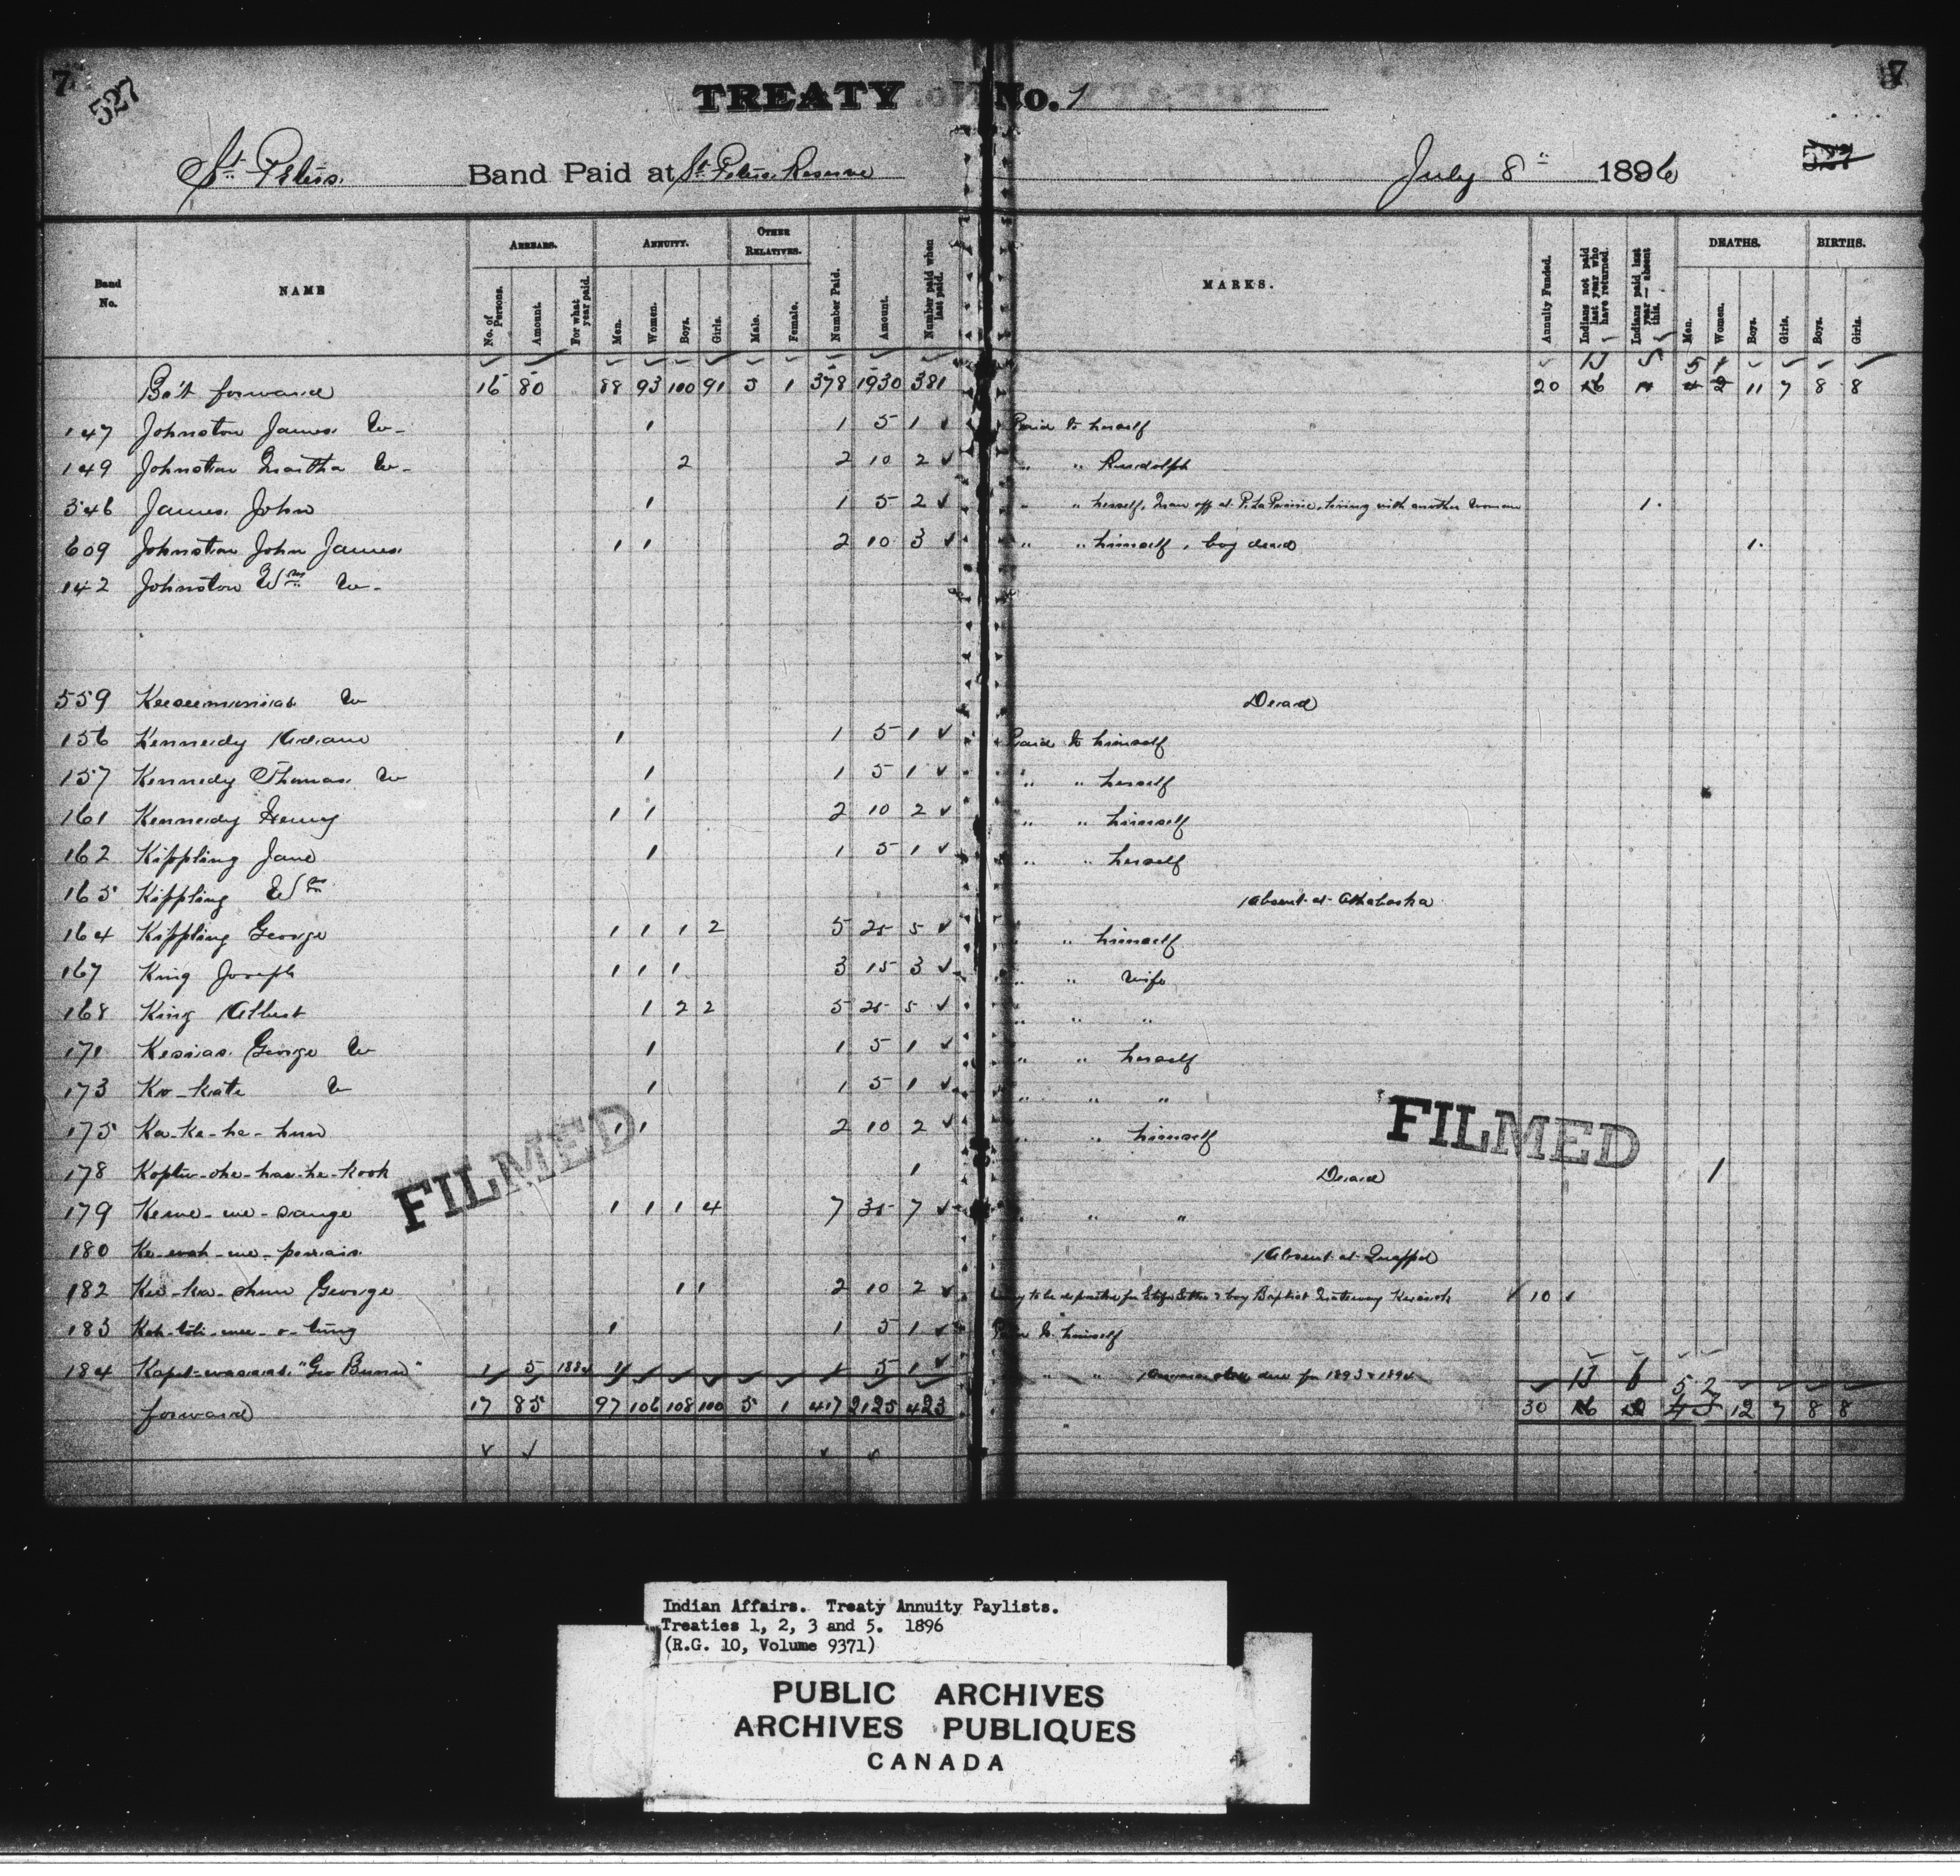 7 527 TREATY No. 1 7
St. Peters Band Paid at St. Peters Reserve July 8th 1896 527
Band No. NAME ARREARS. ANNUITY. OTHER RELATIVES. Number Paid. Amount. Number paid when last paid. MARKS. Annuity Funded. Indians not paid last year who have returned. Indians paid last year — absent this. DEATHS. BIRTHS.
No. of Persons. Amount. For what year paid. Men. Women. Boys. Girls. Male. Female. Men. Women. Boys. Girls. Boys. Girls.
13 5 5 1
Bo't forward 16 80 88 93 100 91 5 1 378 1930 381 20 16 4 2 11 7 8 8
147 Johnston James W- 1 1 5 1 Paid to herself
149 Johnston Martha W- 2 2 10 2 " " Rudolph
546 James John 1 1 5 2 " " herself, Man off at P. La Prairie, living with another woman 1
609 Johnston John James 1 1 2 10 3 " " himself, boy dead 1
142 Johnston Wm W-
559 W Dead
156 Kennedy 1 1 5 1 Paid to himself
157 Kennedy Thomas W 1 1 5 1 " " herself
161 Kennedy Henry 1 1 2 10 2 " " himself
162 Kippling Jane 1 1 5 1 " " herself
165 Kippling Wm Absent at Athabaska
164 Kippling George 1 1 1 2 5 25 5 " " himself
167 King Joseph 1 1 1 3 15 3 " " Wife
168 King Albert 1 2 2 5 25 5 " " "
171 Kesias George W 1 1 5 1 " " herself
173 Ko-kate W 1 1 5 1 " " "
175 Ka-ke-he-hun 1 1 2 10 2 " " himself
178 1 Dead 1
FILMED FILMED
179 Kewe-we-sange 1 1 1 4 7 35 7 " " "
180 Absent at Quappel
182 George 1 1 2 10 2 10
183 1 1 5 1 Paid to himself
184 "Geo Bunn" 1 5 1884 1 1 5 1 " " due for 1893 & 1894
13 6 5 2
forward 17 85 97 106 108 100 5 1 417 2125 423 30 16 4 3 12 7 8 8
Indian Affairs. Treaty Annuity Paylists.
Treaties 1, 2, 3 and 5. 1896
(R.G. 10, Volume 9371)
PUBLIC ARCHIVES
ARCHIVES PUBLIQUES
CANADA